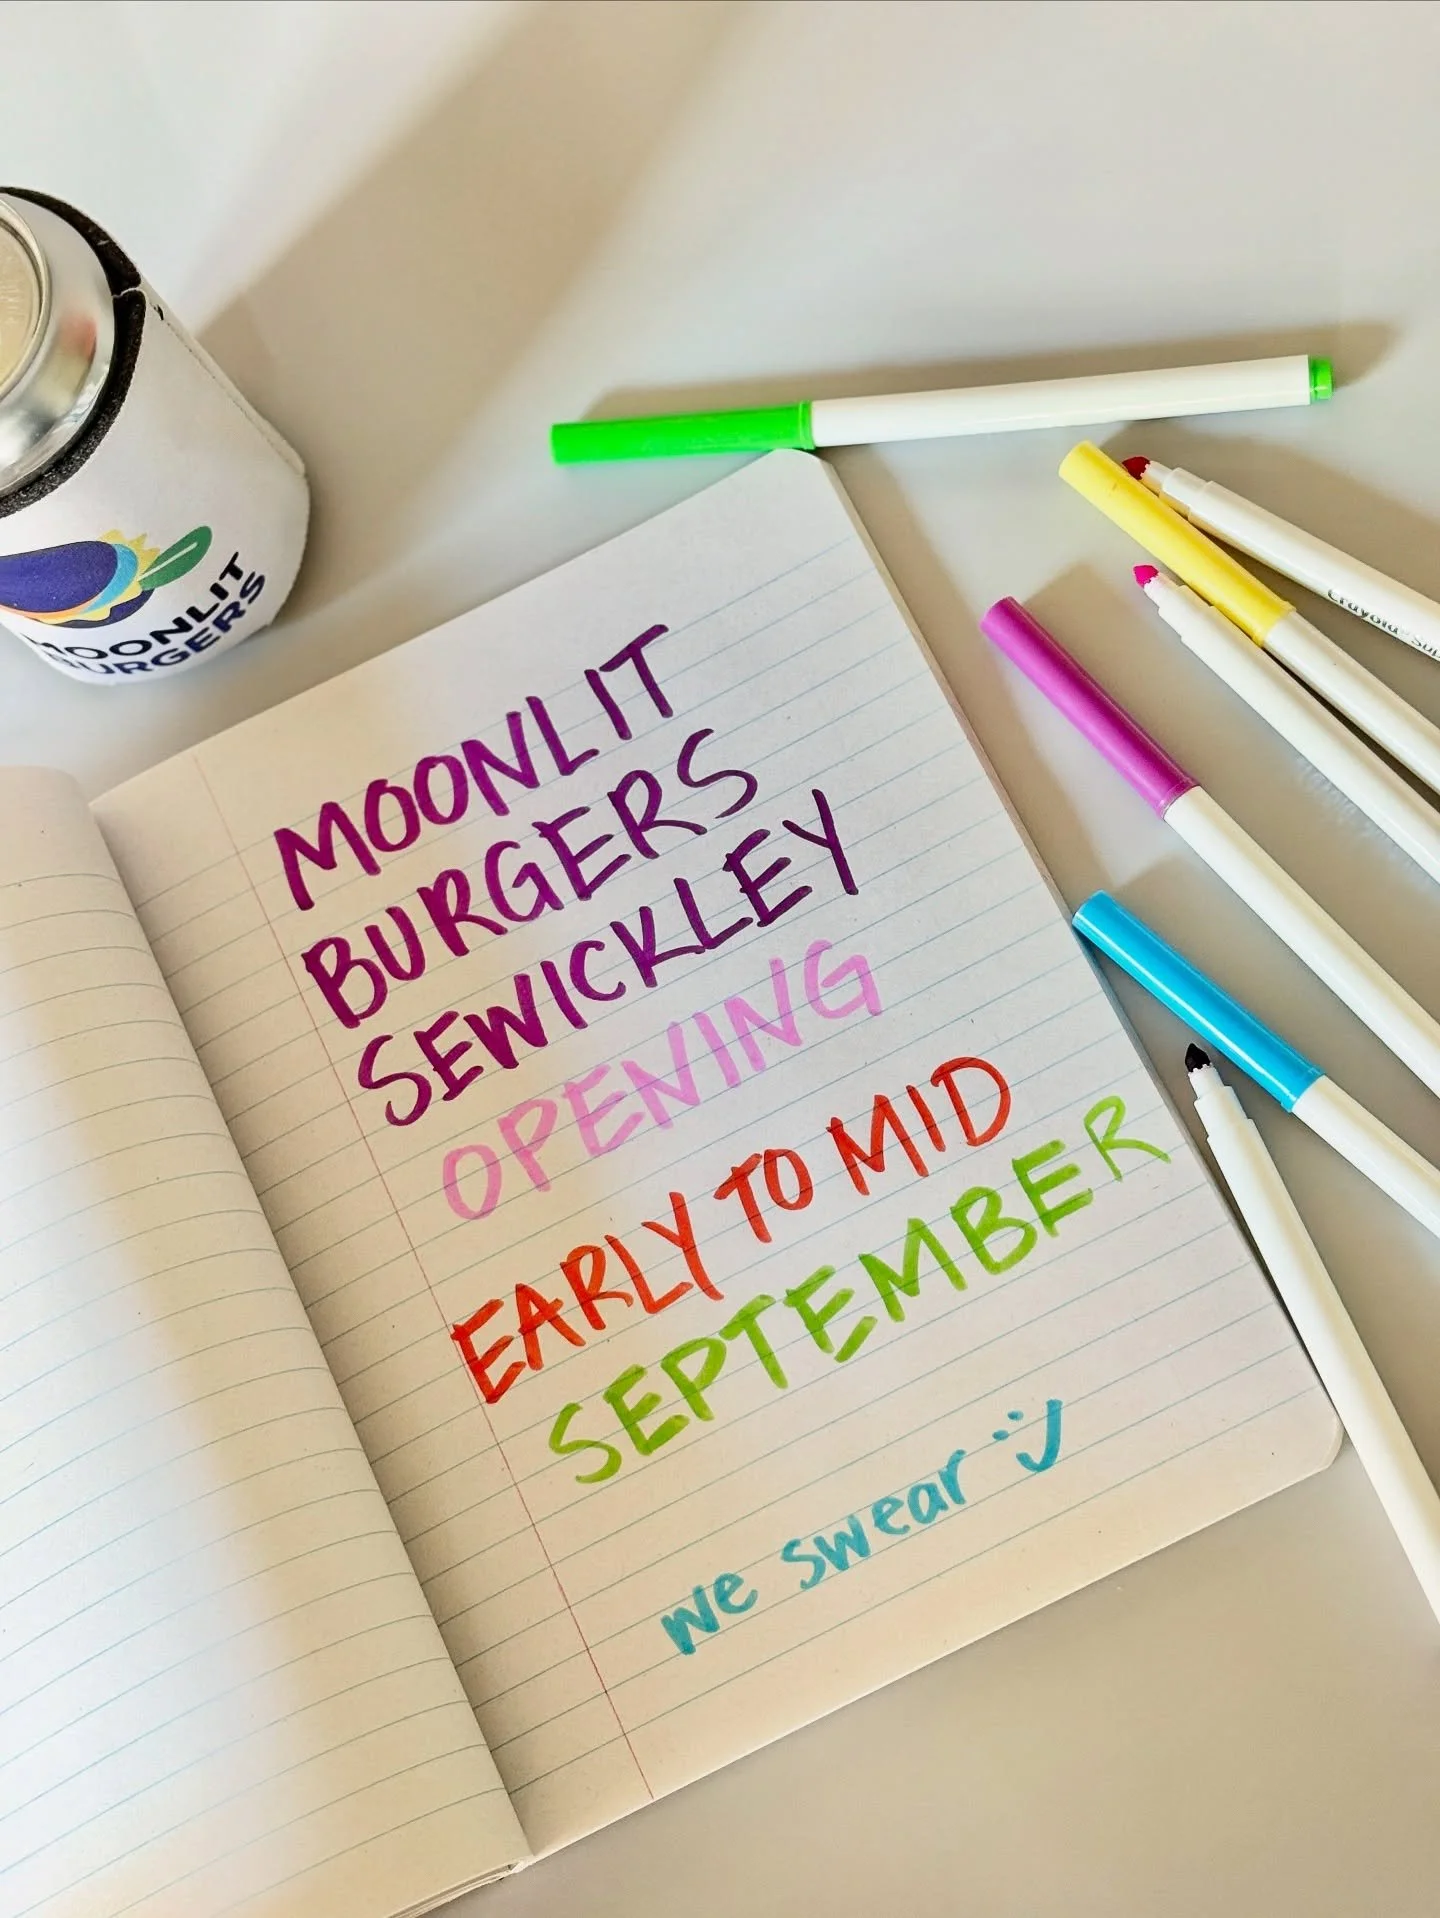 MOONLIT
BURGERS
MOONLIT
BURGERS
SEWICKLEY
OPENING
EARLY TO MID
SEPTEMBER
we swear :)
Crayola